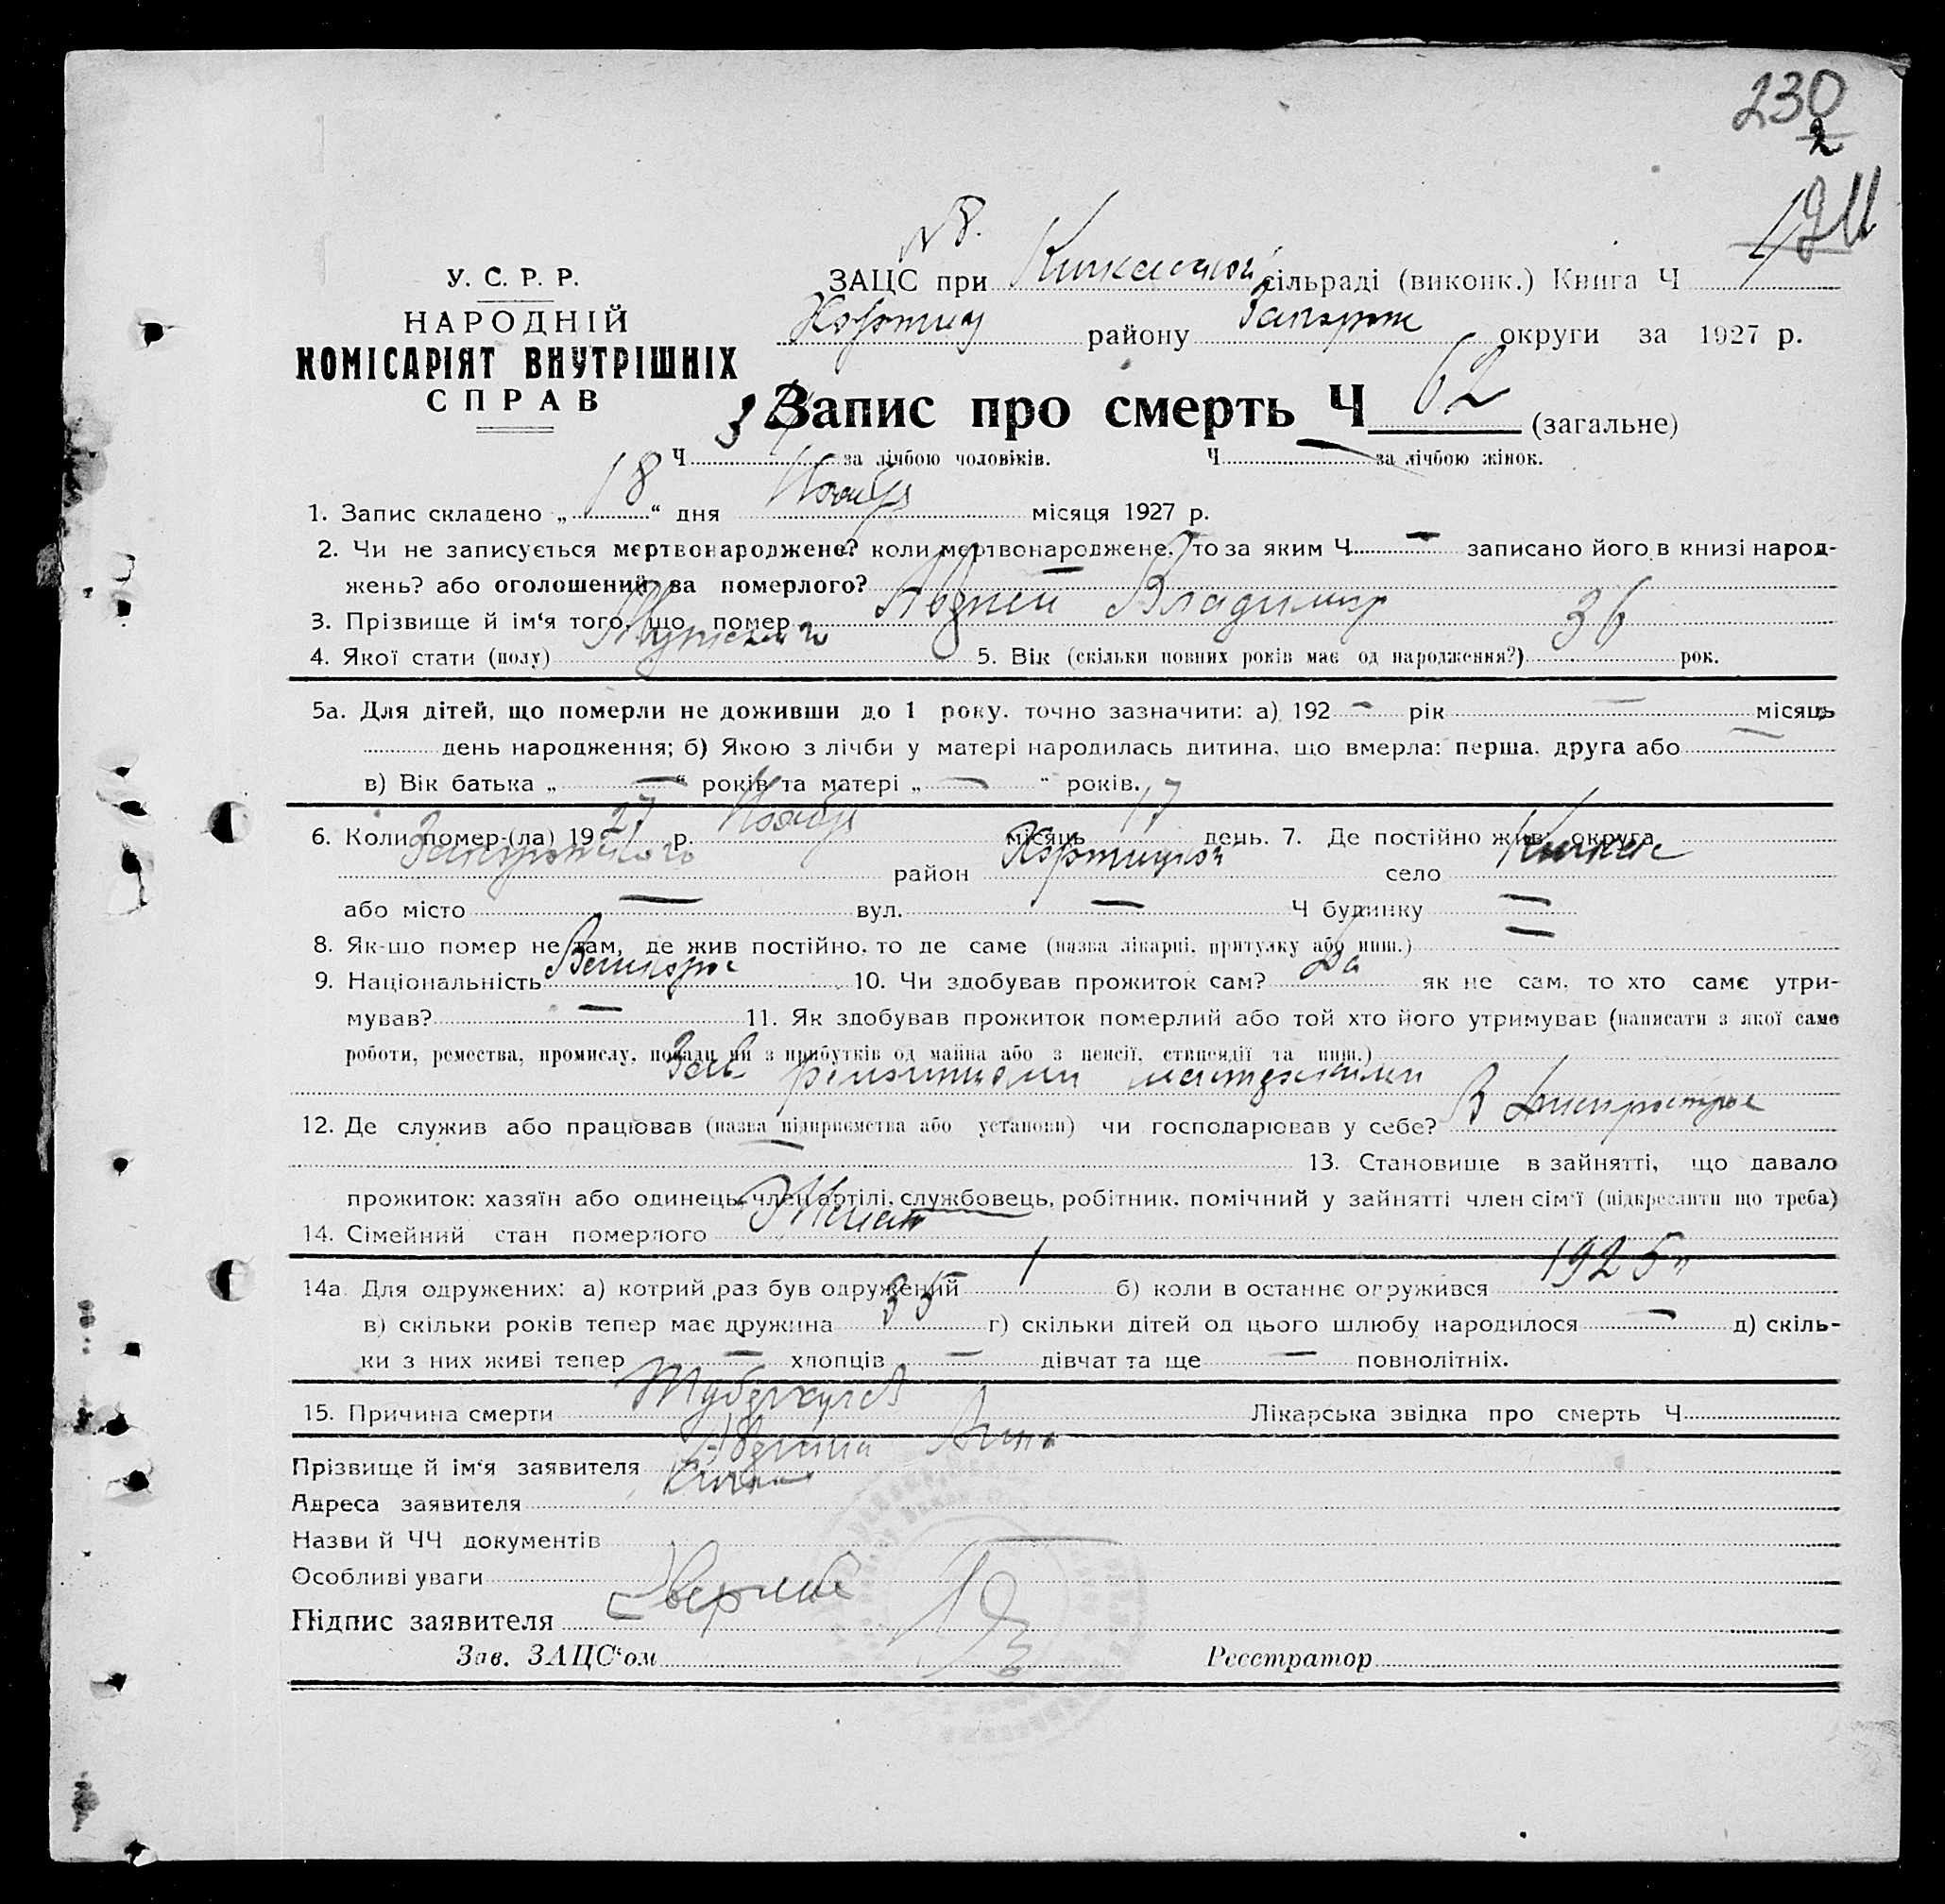 230
2
У. С. Р. Р.
НАРОДНІЙ
КОМІСАРІЯТ ВНУТРІШНІХ
СПРАВ
№ 8.
ЗАЦС при Кичкаской сільраді (виконк.) Книга Ч
Хортиц району Запорож округи за 1927 р.
Запис про смерть Ч 62 (загальне)
Ч за лічбою чоловіків. Ч — за лічбою жінок.
1. Запис складено „ 18 “ дня Ноября місяця 1927 р.
2. Чи не записується мертвонароджене? коли мертвонароджене, то за яким Ч — записано його в книзі народ-
жень? або оголошений за померлого? —
3. Прізвище й ім‘я того, що помер Владимир
4. Якої стати (полу) Мужского 5. Вік (скільки повних років має од народження?) 36 рок.
5а. Для дітей, що померли не доживши до 1 року. точно зазначити: а) 192 — рік — місяць
день народження; б) Якою з лічби у матері народилась дитина, що вмерла: перша, друга або —
в) Вік батька „ — “ років та матері „ — “ років.
6. Коли помер-(ла) 19 27 р. Ноября місяць 17 день. 7. Де постійно жив: округа
Запорожского район Хортицкой село Кичкас
або місто — вул. — Ч будинку —
8. Як-що помер не там, де жив постійно, то де саме (назва лікарні, притулку або инш.) —
9. Національність Великорос 10. Чи здобував прожиток сам? Да як не сам, то хто саме утри-
мував? — 11. Як здобував прожиток померлий або той хто його утримував (написати з якої саме
роботи, ремества, промислу, посади чи з прибутків од майна або з пенсії, стипендії та инш.)
Зав.
12. Де служив або працював (назва підприємства або установи) чи господарював у себе? В Днепрострое
— 13. Становище в зайнятті, що давало
прожиток: хазяїн або одинець, член артілі, службовець, робітник, помічний у зайнятті член сім‘ї (підкреслити що треба)
14. Сімейний стан померлого Женат
14а Для одружених: а) котрий раз був одружений 1 б) коли в останнє одружився 1925
в) скільки років тепер має дружина 35 г) скільки дітей од цього шлюбу народилося — д) скіль-
ки з них живі тепер — хлопців — дівчат та ще — повнолітніх.
15. Причина смерти Туберкулез Лікарська звідка про смерть Ч
Прізвище й ім‘я заявителя Анна
Адреса заявителя Кичкас
Назви й ЧЧ документів
Особливі уваги
Підпис заявителя
Зав. ЗАЦС‘ом Реєстратор